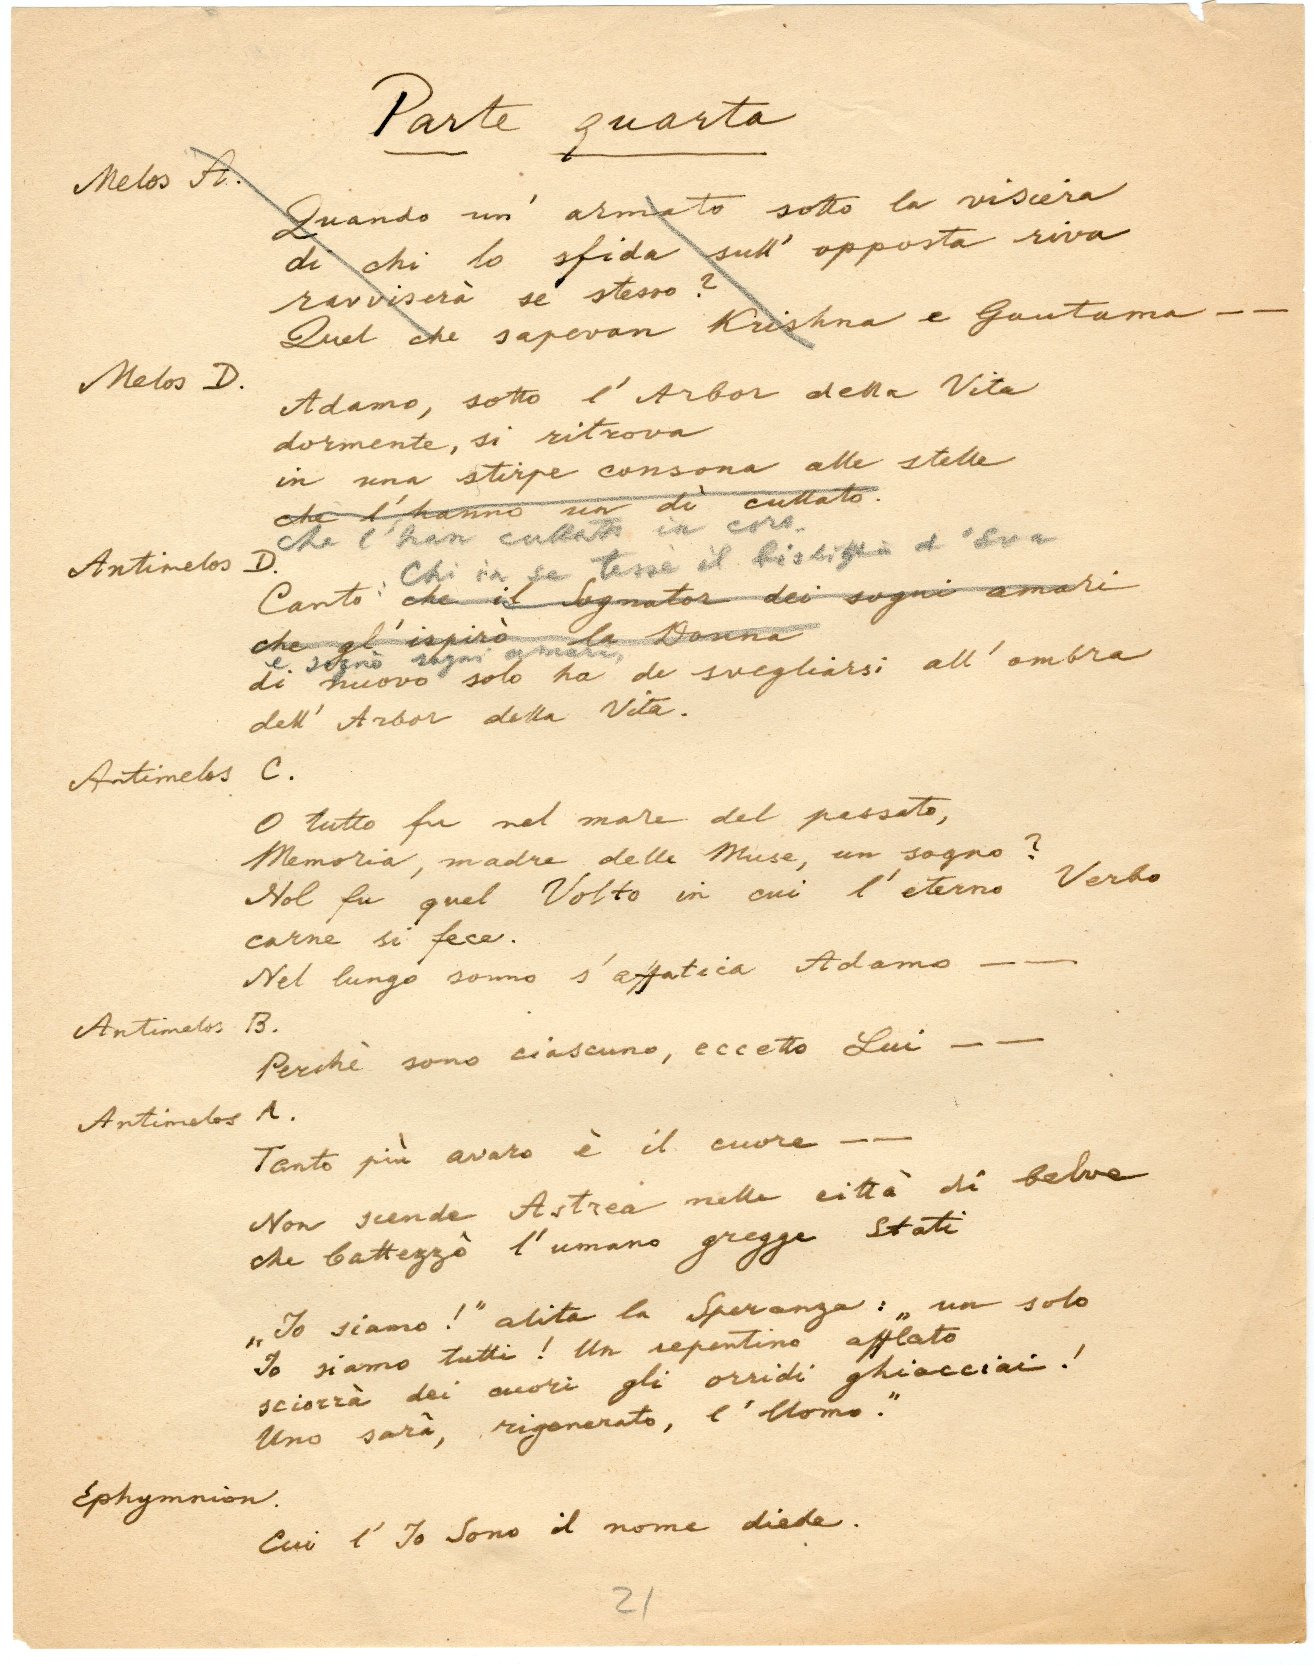 Parte quarta
Melos A.
Quando un' armato sotto la visiera
di chi lo sfida sull' opposta riva
ravviserà se stesso?
Quel che sapevan Krishna e Gautama — —
Melos D.
Adamo, sotto l' Arbor della Vita
dormente, si ritrova
in una stirpe consona alle stelle
che l' hanno un dì cullato.
che l' han cullato in coro.
Antimelos D.
Chi in se tesse il bisbiglio d' Eva
Canto: che il Sognator dei sogni amari
che gl' ispirò la Donna
e sognò sogni amari,
di nuovo solo ha da svegliarsi all' ombra
dell' Arbor della Vita.
Antimelos C.
O tutto fu nel mare del passato,
Memoria, madre delle Muse, un sogno?
Nol fu quel Volto in cui l' eterno Verbo
carne si fece.
Nel lungo sonno s' affatica Adamo — —
Antimelos B.
Perchè sono ciascuno, eccetto Lui — —
Antimelos A.
Tanto più avaro è il cuore — —
Non scende Astrea nelle città di belve
che battezzò l' umano gregge Stati
„Io siamo!" alita la Speranza: „un solo
Io siamo tutti! Un repentino afflato
sciorrà dei cuori gli orridi ghiacciai!
Uno sarà, rigenerato, l' Uomo."
Ephymnion.
Cui l' Io Sono il nome diede.
21